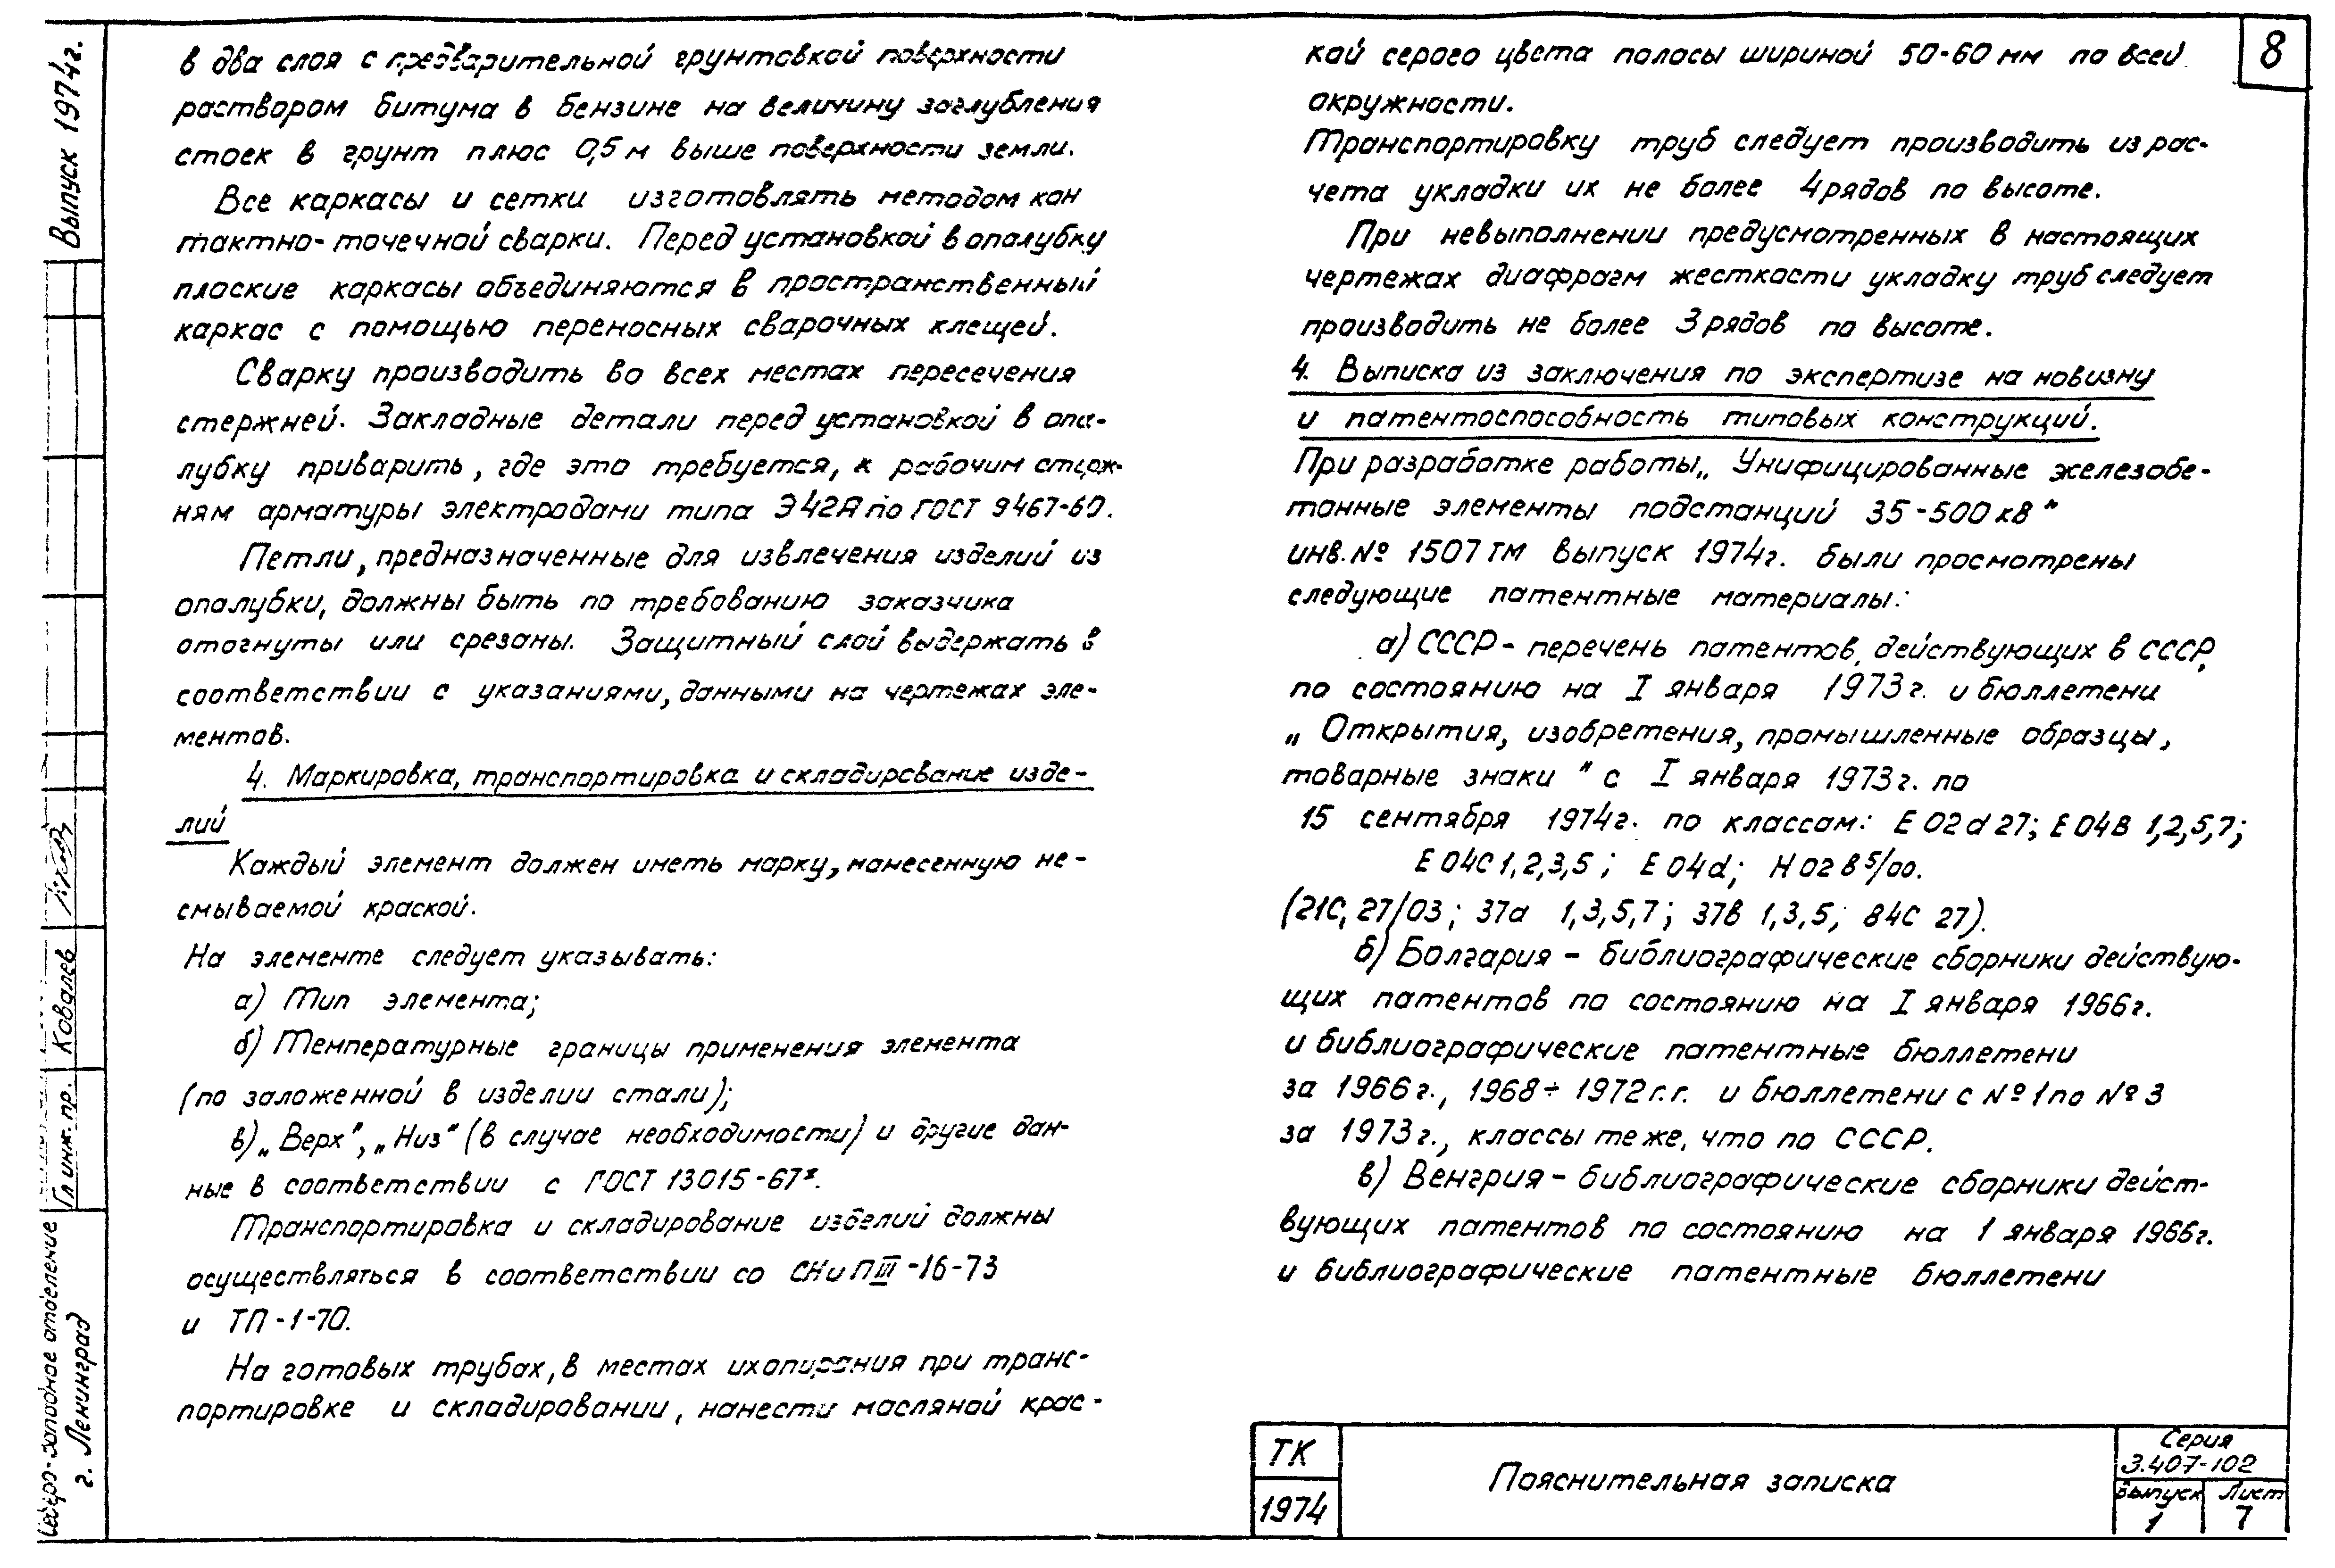 в два слоя с предварительной грунтовкой поверхности
раствором битума в бензине на величину заглубления
стоек в грунт плюс 0,5 м выше поверхности земли.
Все каркасы и сетки изготовлять методом кон
тактно-точечной сварки. Перед установкой в опалубку
плоские каркасы объединяются в пространственный
каркас с помощью переносных сварочных клещей.
Сварку производить во всех местах пересечения
стержней. Закладные детали перед установкой в опа-
лубку приварить, где это требуется, к рабочим стерж-
ням арматуры электродами типа Э42А по ГОСТ 9467-60.
Петли, предназначенные для извлечения изделий из
опалубки, должны быть по требованию заказчика
отогнуты или срезаны. Защитный слой выдержать в
соответствии с указаниями, данными на чертежах эле-
ментов.
4. Маркировка, транспортировка и складирование изде-
лий
Каждый элемент должен иметь марку, нанесенную не-
смываемой краской.
На элементе следует указывать:
а) Тип элемента;
б) Температурные границы применения элемента
(по заложенной в изделии стали);
в) „Верх", „Низ" (в случае необходимости) и другие дан-
ные в соответствии с ГОСТ 13015-67ˣ.
Транспортировка и складирование изделий должны
осуществляться в соответствии со СНиП III-16-73
и ТП-1-70.
На готовых трубах, в местах их опирания при транс-
портировке и складировании, нанести масляной крас-
кой серого цвета полосы шириной 50-60 мм по всей
окружности.
Транспортировку труб следует производить из рас-
чета укладки их не более 4 рядов по высоте.
При невыполнении предусмотренных в настоящих
чертежах диафрагм жесткости укладку труб следует
производить не более 3 рядов по высоте.
4. Выписка из заключения по экспертизе на новизну
и патентоспособность типовых конструкций.
При разработке работы „Унифицированные железобе-
тонные элементы подстанций 35-500 кВ"
инв. № 1507 ТМ выпуск 1974г. были просмотрены
следующие патентные материалы:
а) СССР - перечень патентов, действующих в СССР,
по состоянию на I января 1973г. и бюллетени
„Открытия, изобретения, промышленные образцы,
товарные знаки" с I января 1973г. по
15 сентября 1974г. по классам: E 02 d 27; E 04 B 1,2,5,7;
E 04C 1,2,3,5; E 04d; H 02 B 5/00.
(21C, 27/03; 37a 1,3,5,7; 37B 1,3,5; 84C 27).
б) Болгария - библиографические сборники действую-
щих патентов по состоянию на I января 1966г.
и библиографические патентные бюллетени
за 1966г., 1968÷1972г.г. и бюллетени с № 1 по № 3
за 1973г., классы те же, что по СССР.
в) Венгрия - библиографические сборники дейст-
вующих патентов по состоянию на 1 января 1966г.
и библиографические патентные бюллетени
8
ТК
1974
Пояснительная записка
Серия
3.407-102
Выпуск
1
Лист
7
Выпуск 1974г.
Гл. инж. пр. Ковалев
Северо-Западное отделение
г. Ленинград